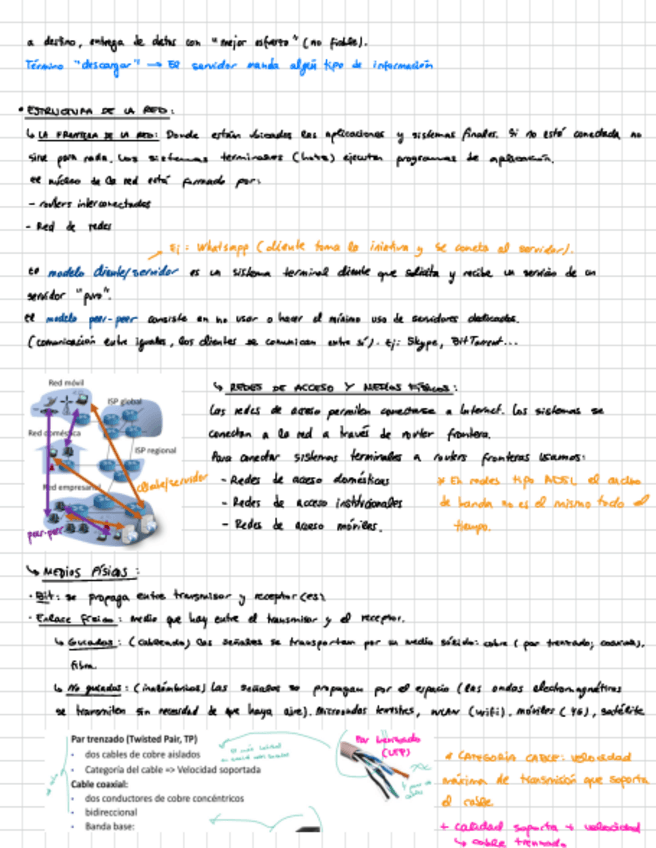 a destino, entrega de datos con "mejor esfuerzo" (no fiable).
Término "descargar" → El servidor manda algún tipo de información
• ESTRUCTURA DE LA RED:
↳ LA FRONTERA DE LA RED: Donde están ubicados las aplicaciones y sistemas finales. Si no está conectada no
sirve para nada. Los sistemas terminales (hosts) ejecutan programas de aplicación.
El núcleo de la red está formado por:
- routers interconectados
- Red de redes
Ej: Whatsapp (cliente toma la y se conecta al servidor).
El modelo cliente/servidor es un sistema terminal cliente que solicita y recibe un servicio de un
servidor "puro".
El modelo peer-peer consiste en no usar o hacer el mínimo uso de servidores dedicados.
(comunicación entre iguales, los clientes se comunican entre sí). Ej: Skype, BitTorrent...
Red móvil
ISP global
Red doméstica
ISP regional
Red empresarial
cliente/servidor
peer-peer
↳ REDES DE ACCESO Y MEDIOS FÍSICOS:
Las redes de acceso permiten conectarse a Internet. Los sistemas se
conectan a la red a través de router frontera.
Para conectar sistemas terminales a routers fronteras usamos:
- Redes de acceso domésticas
- Redes de acceso institucionales
- Redes de acceso móviles.
* En redes tipo ADSL, el ancho
de banda no es el mismo todo el
tiempo.
↳ MEDIOS FÍSICOS:
· Bit: se propaga entre transmisor y receptor(es)
· Enlace físico: medio que hay entre el transmisor y el receptor.
↳ Guiados: (cableado) las señales se transportan por un medio sólido: cobre (par trenzado, coaxial),
fibra.
↳ No guiados: (inalámbricos) Las señales se propagan por el espacio (las ondas electromagnéticas
se transmiten sin necesidad de que haya aire). Microondas terrestres, WLAN (wifi), móviles (4G), satélite
Par trenzado (Twisted Pair, TP)
• dos cables de cobre aislados
• Categoría del cable => Velocidad soportada
Cable coaxial:
• dos conductores de cobre concéntricos
• bidireccional
• Banda base:
Par trenzado
(UTP)
* CATEGORÍA CABLE: velocidad
máxima de transmisión que soporta
el cable
+ calidad soporta + velocidad
↳ cobre trenzado